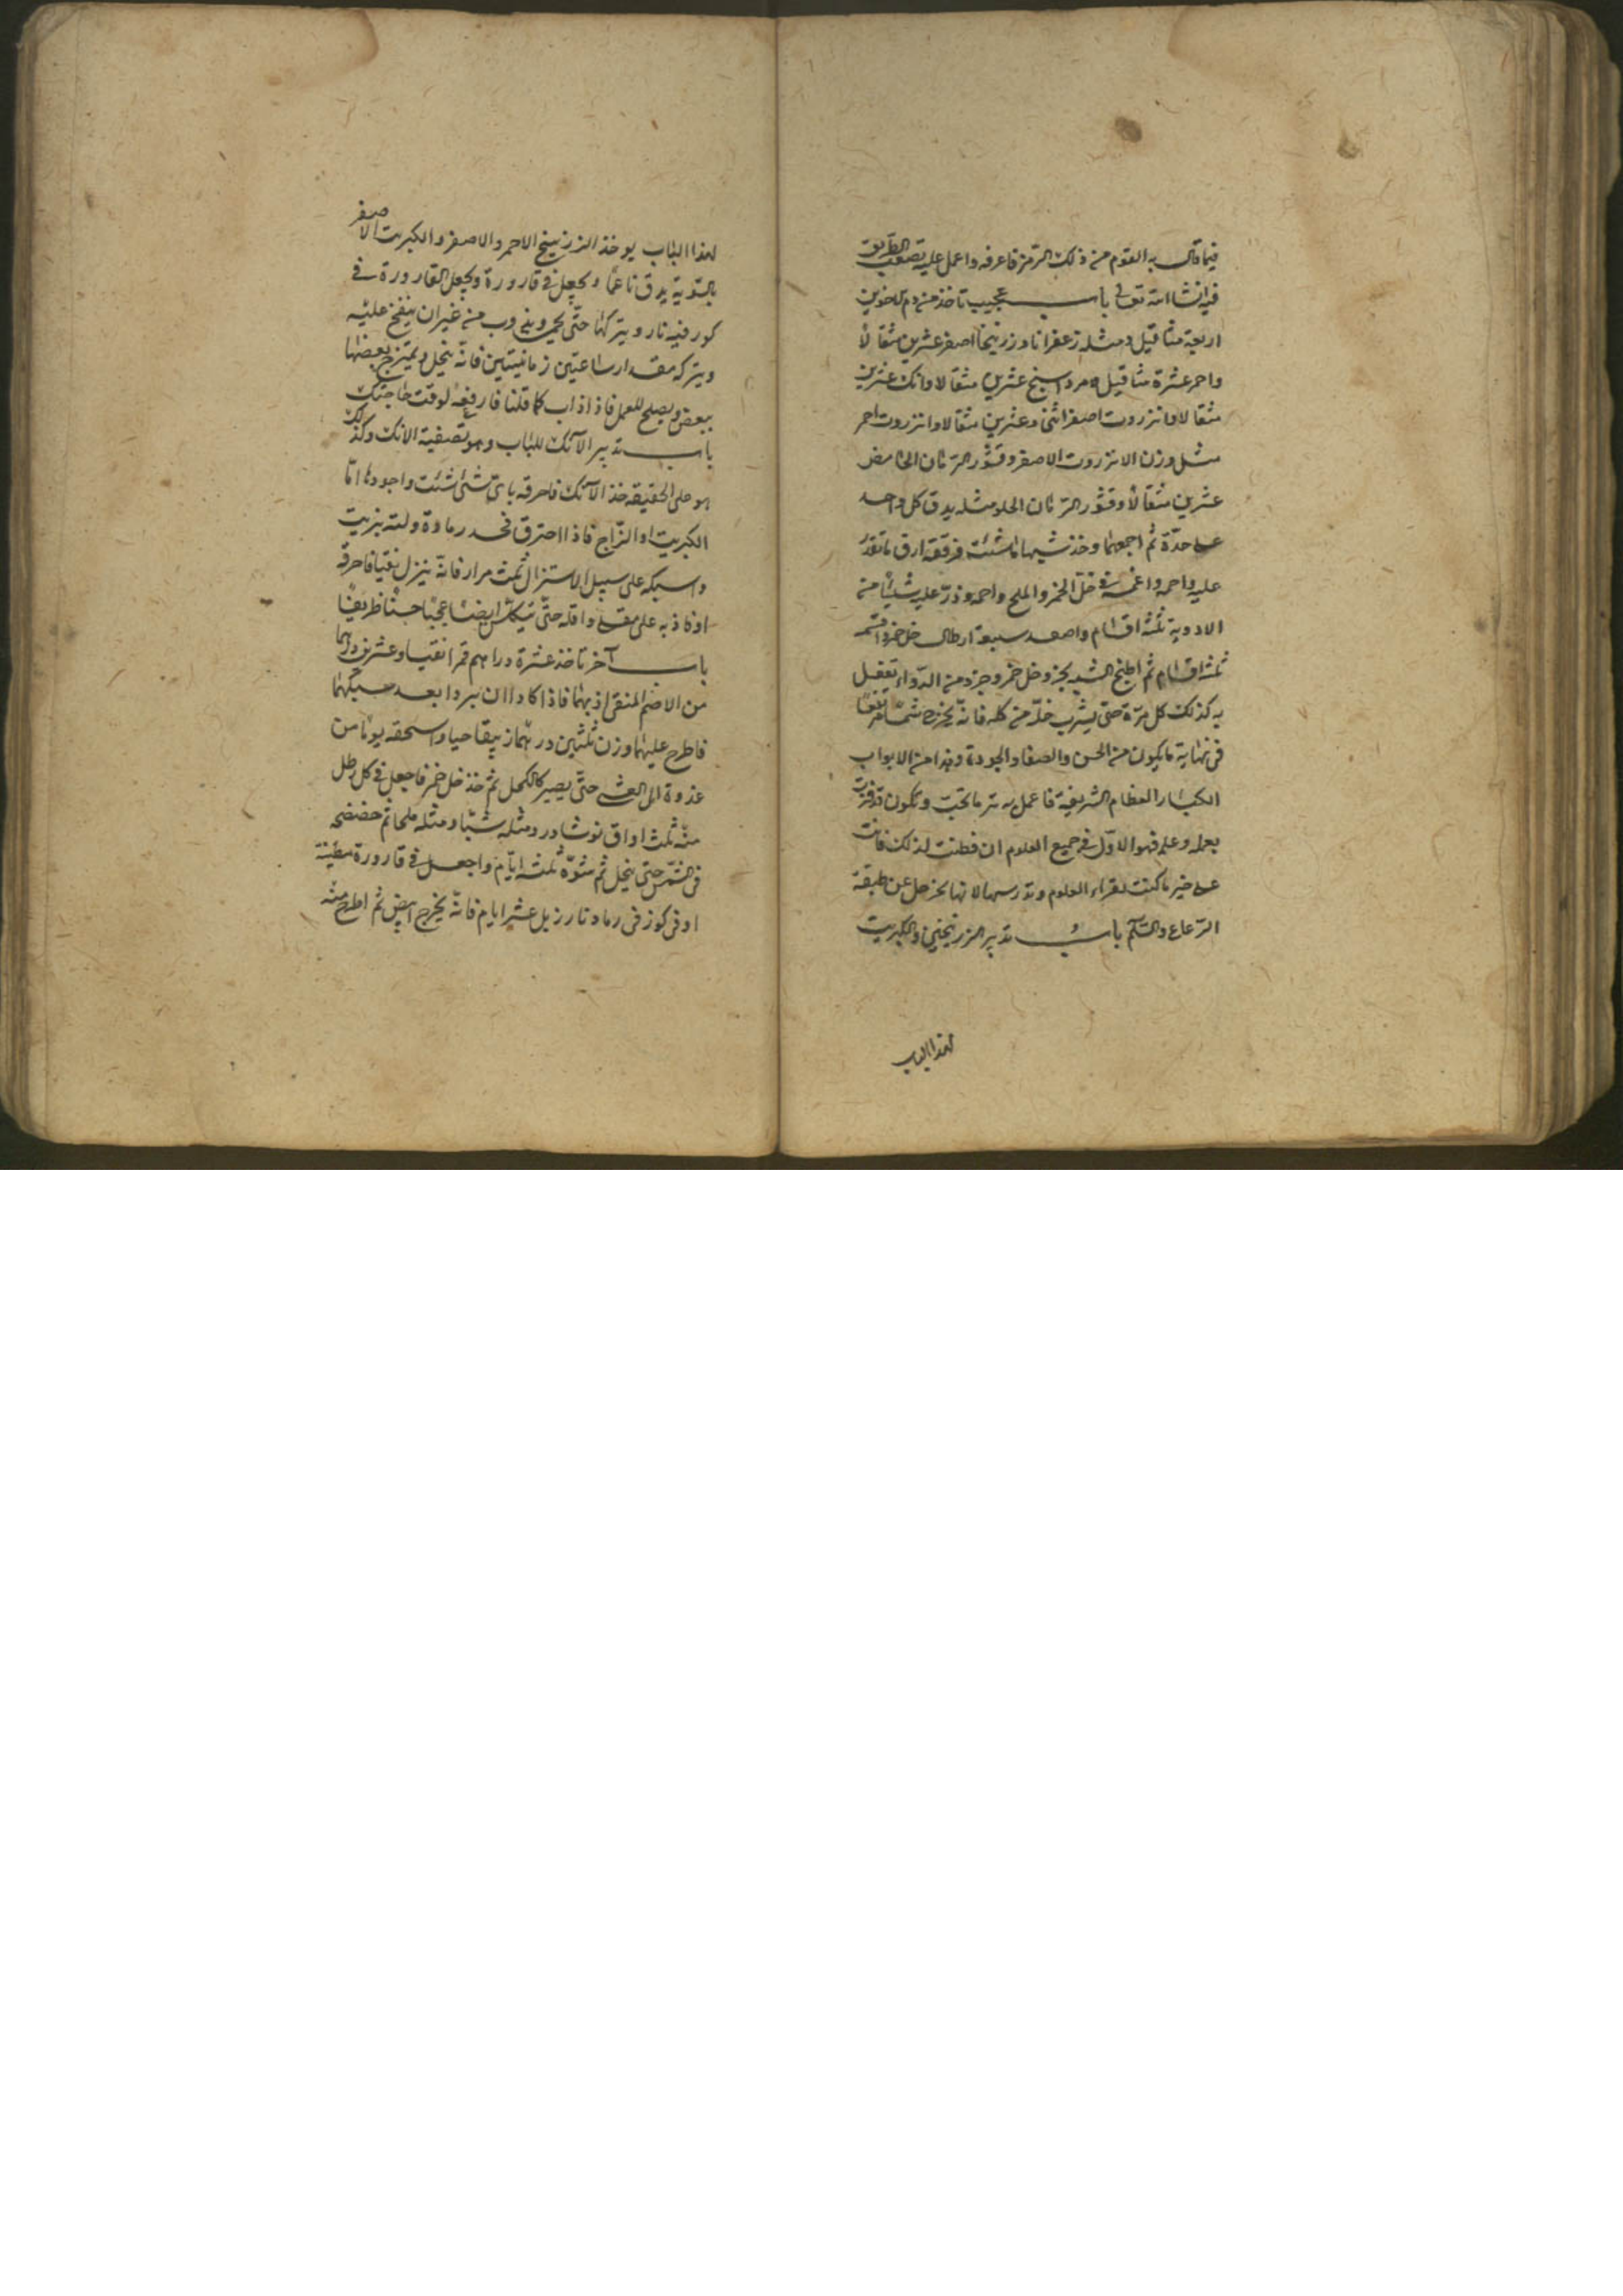 فيما قال به القوم من ذلك الرمز فاعرفه واعمل عليه تصب الطريق
فيه انشا الله تعالى باب عجيب تاخذ من دم الاخوين
اربعة مثاقيل ومثله زعفرانا وزرنيخا اصفر عشرين مثقالا
واحمر عشرة مثاقيل ومرداسنج عشرين مثقالا وانك عشرين
مثقالا وانزروت اصفر اثنى وعشرين مثقالا وانزروت احمر
مثل وزن الانزروت الاصفر وقشور الرمان الحامض
عشرين مثقالا وقشور الرمان الحلو مثله يدق كل واحد
على حدة ثم اجمعها وخذ شبها ما شئت فرققه ارق ما تقدر
عليه واحمه واغمسه فى خل الخمر والملح واحمه وذر عليه شيئا من
الادوية ثلثة اقسام واصعد سبعة ارطال خل خمر واقسمه
ثلثة اقسام ثم اطبخ الشبه بجزء وخل خمر وجزء من الدواء تفعل
به كذلك كل مرة حتى يشرب خله من كله فانه يخرج شمسا
فى نهاية ما يكون من الحسن والصفا والجودة وهذا من الابواب
الكبار العظام الشريفة فاعمل به تر ما تحب وتكون قد فزت
بعمله وعلمه فهو الاول فى جميع العلوم ان فطنت لذلك فانت
على خير ما كنت لقراء العلوم وتدرسها لانها تخرجك عن طبقة
الرعاع والسلم باب تدبير الزرنيخين والكبريت
لهذا الباب
لهذا الباب يوخذ الزرنيخ الاحمر والاصفر والكبريت الاصفر
بالسوية يدق ناعما ويجعل فى قارورة ويجعل القارورة فى
كور فيه نار ويتركها حتى يحمى ويذوب من غير ان ينفخ عليه
ويتركه مقدار ساعتين زمانيتين فانه ينحل ويمتزج بعضها
ببعض ويصلح للعمل فاذا ذاب كما قلنا فارفعه لوقت حاجتك
باب تدبير الآنك للباب وهو تصفية الانك وكذلك
هو على الحقيقه خذ الآنك فاحرقه باى شئ شئت واجودها اما
الكبريت او الزاج فاذا احترق فخد رماده ولته بزيت
واسبكه على سبيل الاستنزال ثلث مرار فانه ينزل نقيا فاحرقه
او فاذبه على مقلى واقله حتى يتكلس ابيضا عجيبا حسنا ظريفا
باب آخر تاخذ عشرة دراهم قمرا نقيا وعشرين درهما
من الاضم المنقى اذبهما فاذا كادا ان يبردا بعد سبكهما
فاطرح عليهما وزن ثلثين درهما زيبقا حيا واسحقه يوما من
غذوة الى العشى حتى يصير كالكحل ثم خذ خل خمر فاجعل فى كل رطل
منه ثلث اواق نوشادر ومثله شبا ومثله ملحا ثم خضخضه
فى الشمس حتى ينحل ثم شوه ثلثة ايام واجعل فى قارورة مطينة
او فى كوز فى رماد نار زبل عشر ايام فانه يخرج ابيض ثم اطرح منه